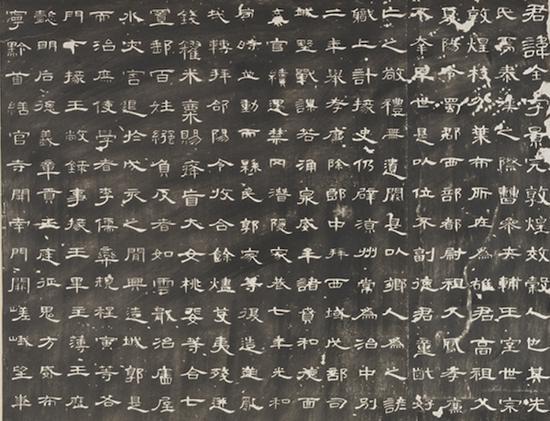 君諱全字景完敦煌效穀人也其先
氏焉秦漢之際曹參夾輔王室世宗
敦煌枝分葉布所在為雄君高祖父
夏陽令蜀郡西部都尉祖父鳳孝廉
不幸早世是以位不副德君童齔好
亡之敬禮無遺闕是以鄉人為之諺
職上計掾史仍辟涼州常為治中別
二年舉孝廉除郎中拜西域戊部司
城野戰謀若涌泉威牟諸賁和德面
棄官續遇禁网潛隱家巷七年光和
同時並動而縣民郭家等復造逆亂
哉轉拜郃陽令收合餘燼芟夷殘迸
錢糴米粟賜癃盲大女桃婓等合七
置郵百姓繈負反者如雲戢治廧屋
水灾害退於戊亥之間興造城郭是
而治庾使學者李儒欒規程寅等各
門下掾王敞錄事掾王畢主簿王歷
懿明后德義章貢王庭征鬼方威布
寧黔首繕官寺開南門闕嵯峨望華